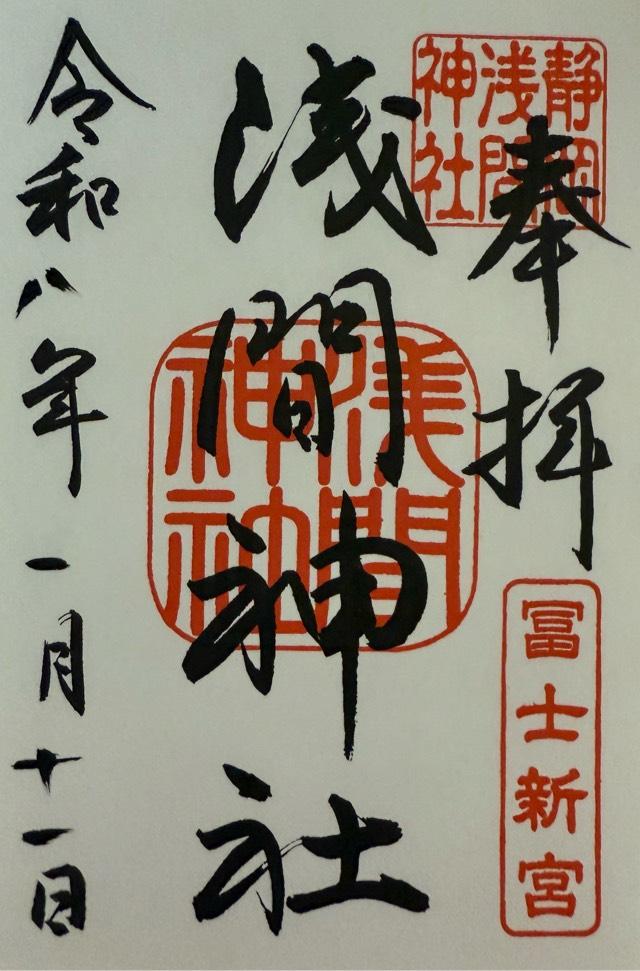 奉拝
静岡
浅間
神社
冨士新宮
浅間神社
浅間
神社
令和八年一月十一日